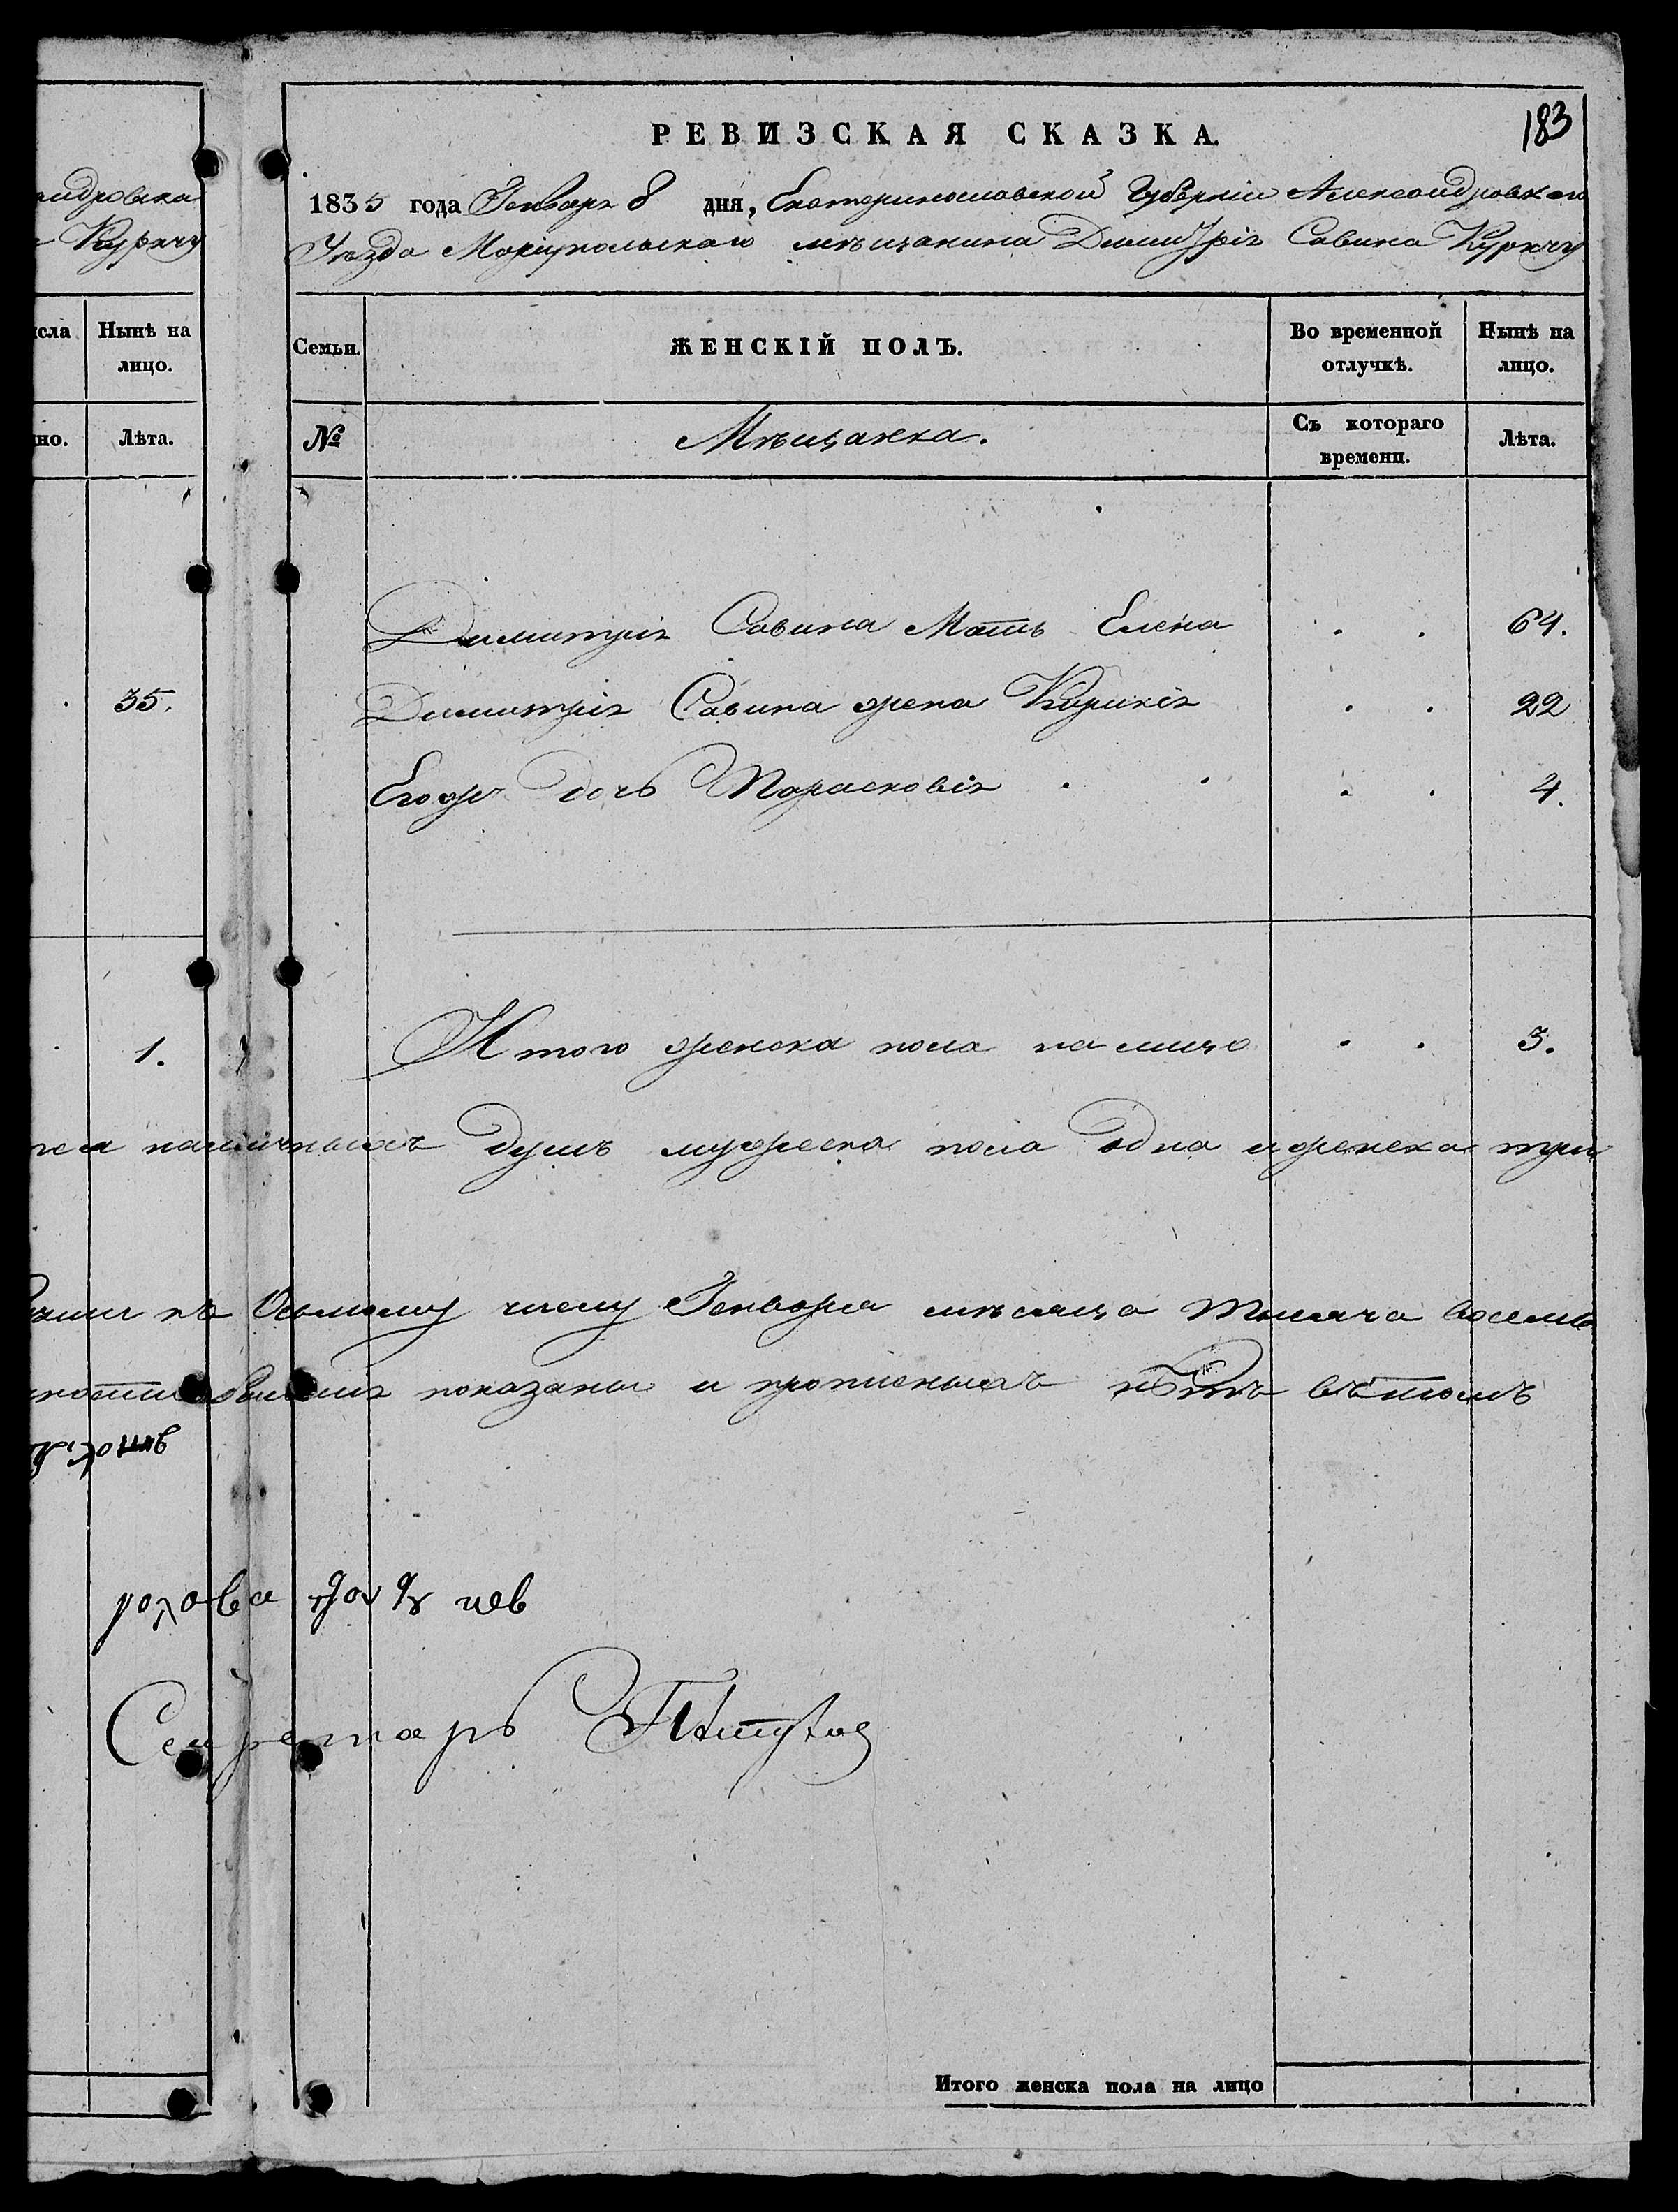 183
РЕВИЗСКАЯ СКАЗКА.
1835 года Генваря 8 дня, Екатеринославской Губерніи Александровскаго
Уезда Маріупольскаго мѣщанина Димитрія Савина Куркчу
Семьи. ЖЕНСКІЙ ПОЛЪ. Во временной отлучкѣ. Нынѣ на лицо.
№ Мѣщанка. Съ котораго времени. Лѣта.
Димитрія Савина Мать Елена . . 64.
Димитрія Савина жена Кирикія . . 22
Егож дочь Парасковія . . . . 4.
Итого женска пола на лицо . . 3.
наличныхъ душъ мужеска пола одна и женска три
къ Осьмому числу Генваря месяца тысяча восемь
показаны и прописныхъ нѣтъ вътомъ
Секретарь
Итого женска пола на лицо
Куркчу
Нынѣ на лицо.
но. Лѣта.
35.
1.